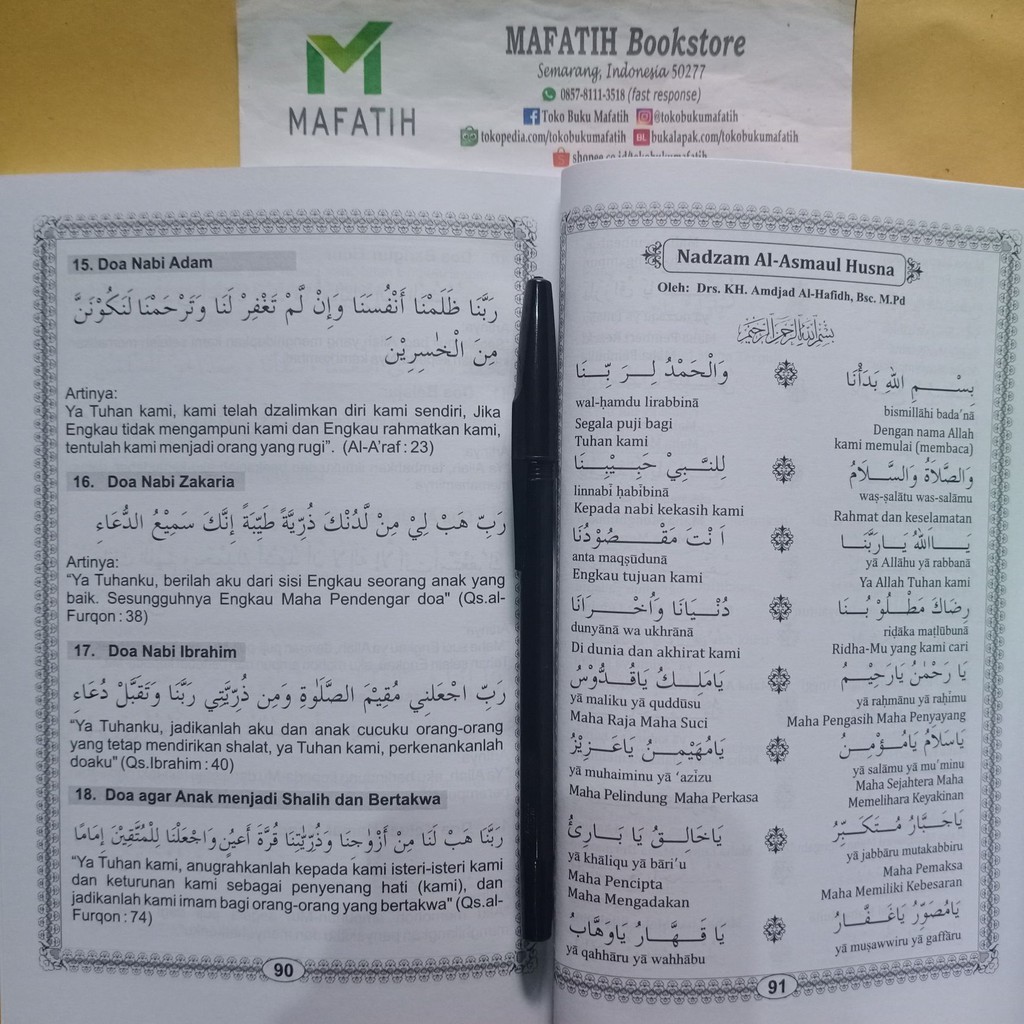 MAFATIH
MAFATIH Bookstore
Semarang, Indonesia 50277
0857-8111-3518 (fast response)
Toko Buku Mafatih @tokobukumafatih
tokopedia.com/tokobukumafatih BL bukalapak.com/tokobukumafatih
shopee.co.id/tokobukumafatih
15. Doa Nabi Adam
رَبَّنَا ظَلَمْنَا أَنْفُسَنَا وَإِنْ لَّمْ تَغْفِرْ لَنَا وَتَرْحَمْنَا لَنَكُوْنَنَّ
مِنَ الْخٰسِرِيْنَ
Artinya:
Ya Tuhan kami, kami telah dzalimkan diri kami sendiri, Jika
Engkau tidak mengampuni kami dan Engkau rahmatkan kami,
tentulah kami menjadi orang yang rugi”. (Al-A’raf : 23)
16. Doa Nabi Zakaria
رَبِّ هَبْ لِيْ مِنْ لَّدُنْكَ ذُرِّيَّةً طَيِّبَةً إِنَّكَ سَمِيْعُ الدُّعَاءِ
Artinya:
“Ya Tuhanku, berilah aku dari sisi Engkau seorang anak yang
baik. Sesungguhnya Engkau Maha Pendengar doa" (Qs.al-
Furqon : 38)
17. Doa Nabi Ibrahim
رَبِّ اجْعَلنِي مُقِيْمَ الصَّلٰوةِ وَمِن ذُرِّيَّتِي رَبَّنَا وَتَقَبَّلْ دُعَاءِ
“Ya Tuhanku, jadikanlah aku dan anak cucuku orang-orang
yang tetap mendirikan shalat, ya Tuhan kami, perkenankanlah
doaku" (Qs.Ibrahim : 40)
18. Doa agar Anak menjadi Shalih dan Bertakwa
رَبَّنَا هَبْ لَنَا مِنْ أَزْوٰجِنَا وَذُرِّيّٰتِنَا قُرَّةَ أَعْيُنٍ وَاجْعَلْنَا لِلْمُتَّقِيْنَ إِمَامًا
“Ya Tuhan kami, anugrahkanlah kepada kami isteri-isteri kami
dan keturunan kami sebagai penyenang hati (kami), dan
jadikanlah kami imam bagi orang-orang yang bertakwa" (Qs.al-
Furqon : 74)
90
Nadzam Al-Asmaul Husna
Oleh: Drs. KH. Amdjad Al-Hafidh, Bsc. M.Pd
بِسْمِ اللهِ الرَّحْمٰنِ الرَّحِيْمِ
بِسْـــمِ اللهِ بَدَأْنَا وَالْحَمْدُ لِــرَ بِّــنَا
bismillāhi bada’nā wal-ḥamdu lirabbinā
Dengan nama Allah Segala puji bagi
kami memulai (membaca) Tuhan kami
وَالصَّلَاةُ وَالسَّـلَامُ لِلنَّــبِيْ حَبِــيْبِــنَا
waṣ-ṣalātu was-salāmu linnabī ḥabībinā
Rahmat dan keselamatan Kepada nabi kekasih kami
يَـــااَللهُ يَـارَبَّنَـــا اَ نْتَ مَقْــصُوْدُنَا
yā Allāhu yā rabbanā anta maqṣūdunā
Ya Allah Tuhan kami Engkau tujuan kami
رِضَاكَ مَطْـلُوْ بُــنَا دُنْـيَانَا وَاُخْـرَانَا
riḍāka maṭlūbunā dunyānā wa ukhrānā
Ridha-Mu yang kami cari Di dunia dan akhirat kami
يَا رَحْمٰنُ يَارَحِيْـــمُ يَامَلِــكُ يَاقُــدُّوْسُ
yā raḥmānu yā raḥīmu yā maliku yā quddūsu
Maha Pengasih Maha Penyayang Maha Raja Maha Suci
يَاسَلَامُ يَامُــؤْمِــنُ يَامُهَيْمِــنُ يَاعَـزِيْزُ
yā salāmu yā mu’minu yā muhaiminu yā ‘azīzu
Maha Sejahtera Maha Maha Pelindung Maha Perkasa
Memelihara Keyakinan
يَاجَبَّـارُ مُــتَكَــبِّرُ يَاخَالِــقُ يَا بَـارِئُ
yā jabbāru mutakabbiru yā khāliqu yā bāri’u
Maha Pemaksa Maha Pencipta
Maha Memiliki Kebesaran Maha Mengadakan
يَامُصَوِّرُ يَاغَـفَّـــارُ يَا قَــهَّـــارُ يَاوَهَّابُ
yā muṣawwiru yā gaffāru yā qahhāru yā wahhābu
91